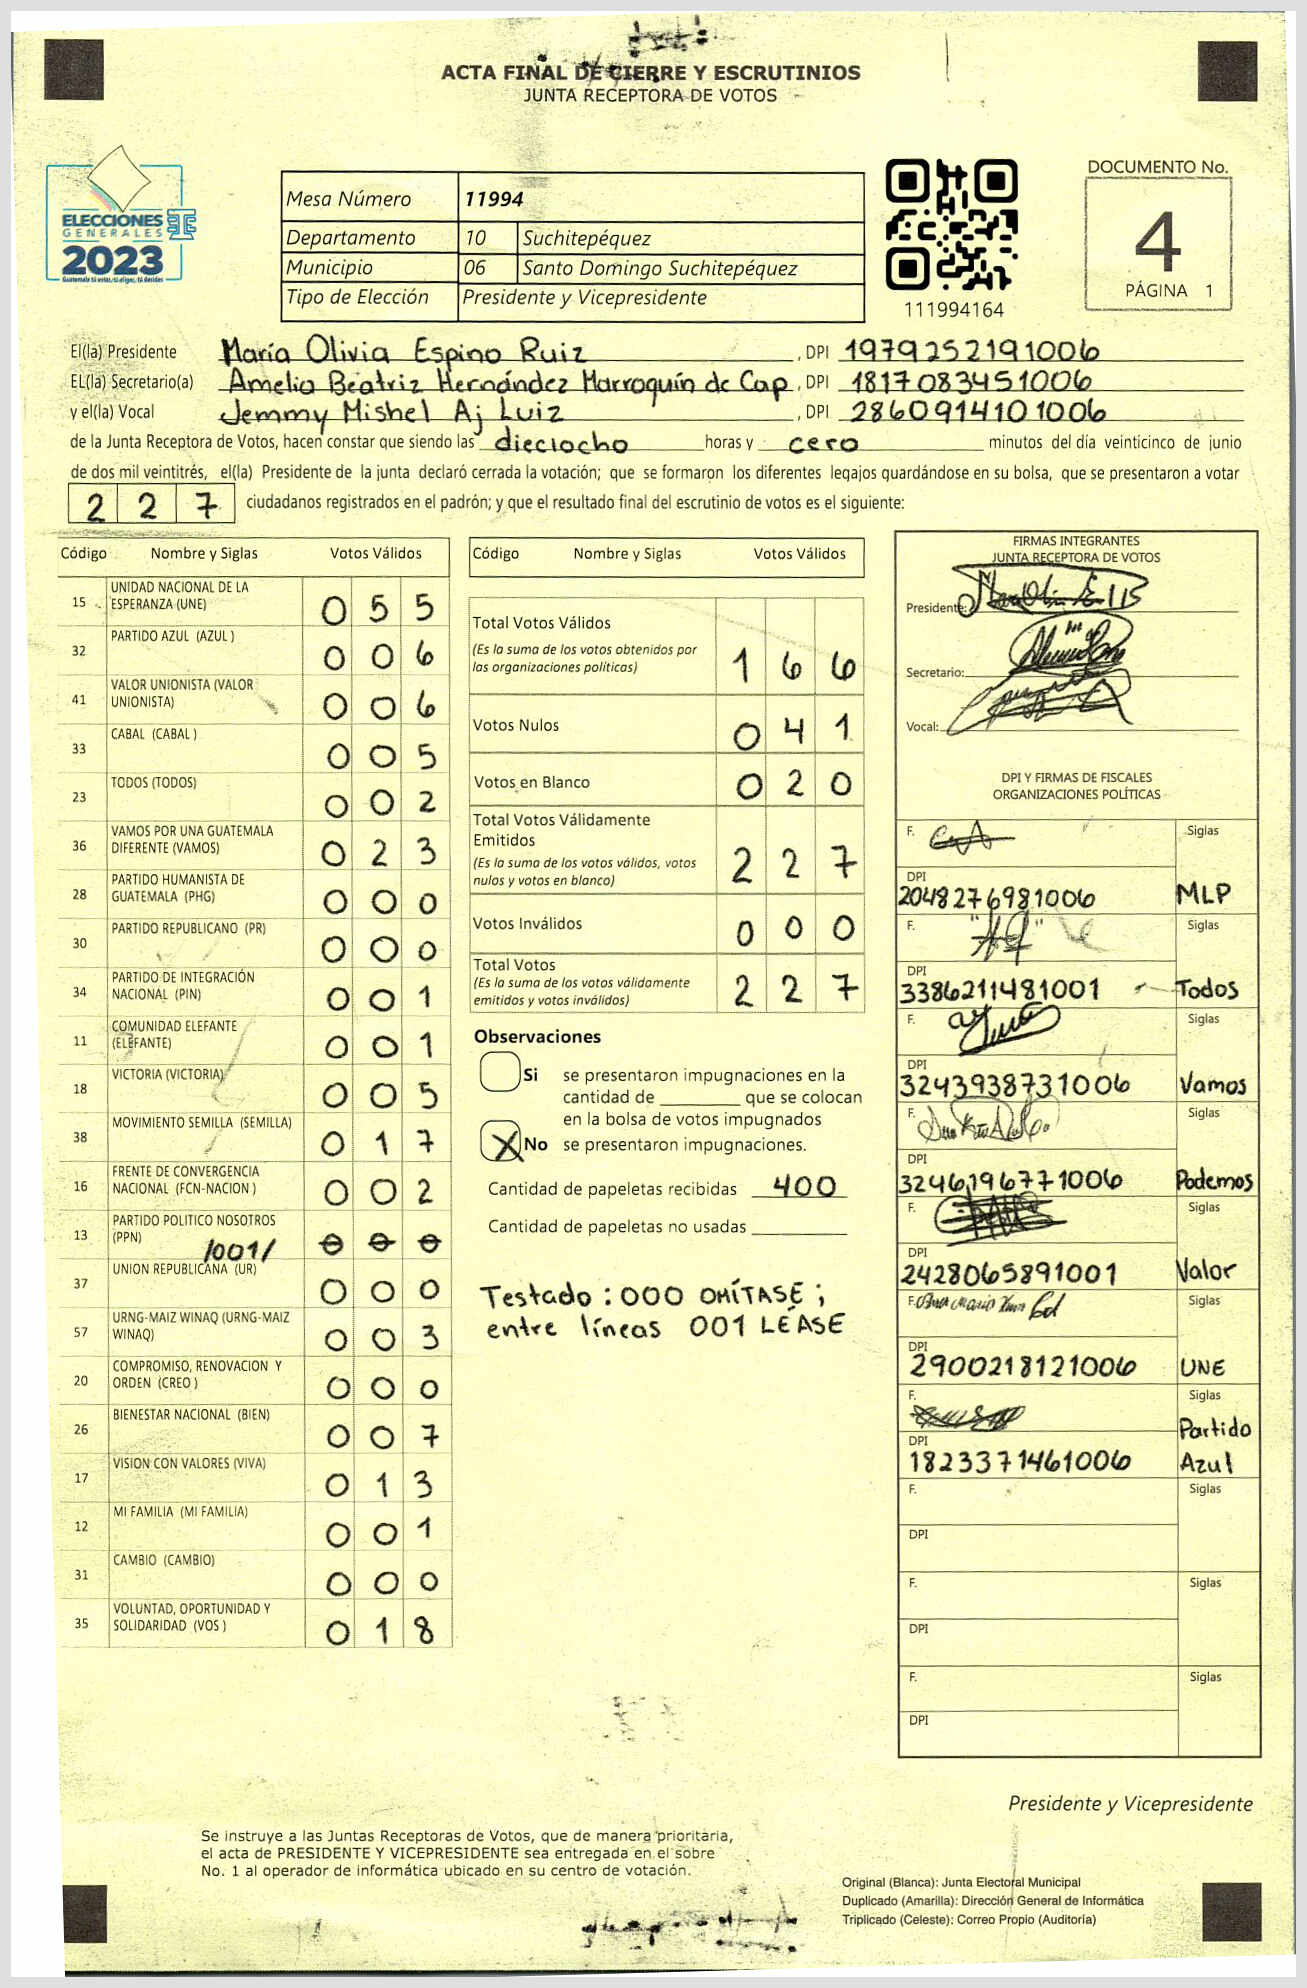 ACTA FINAL DE CIERRE Y ESCRUTINIOS
JUNTA RECEPTORA DE VOTOS
ELECCIONES
GENERALES
2023
Guatemala tú votas, tú eliges, tú decides
Mesa Número 11994
Departamento 10 Suchitepéquez
Municipio 06 Santo Domingo Suchitepéquez
Tipo de Elección Presidente y Vicepresidente
111994164
DOCUMENTO No.
4
PÁGINA 1
El(la) Presidente María Olivia Espino Ruiz , DPI 1979252191006
EL(la) Secretario(a) Amelia Beatriz Hernández Marroquín de Cap , DPI 1817083451006
y el(la) Vocal Jemmy Mishel Aj Luiz , DPI 2860914101006
de la Junta Receptora de Votos, hacen constar que siendo las dieciocho horas y cero minutos del día veinticinco de junio
de dos mil veintitrés, el(la) Presidente de la junta declaró cerrada la votación; que se formaron los diferentes legajos guardándose en su bolsa, que se presentaron a votar
2 2 7 ciudadanos registrados en el padrón; y que el resultado final del escrutinio de votos es el siguiente:
Código Nombre y Siglas Votos Válidos
15 UNIDAD NACIONAL DE LA
ESPERANZA (UNE) 0 5 5
32 PARTIDO AZUL (AZUL ) 0 0 6
41 VALOR UNIONISTA (VALOR
UNIONISTA) 0 0 6
33 CABAL (CABAL ) 0 0 5
23 TODOS (TODOS) 0 0 2
36 VAMOS POR UNA GUATEMALA
DIFERENTE (VAMOS) 0 2 3
28 PARTIDO HUMANISTA DE
GUATEMALA (PHG) 0 0 0
30 PARTIDO REPUBLICANO (PR) 0 0 0
34 PARTIDO DE INTEGRACIÓN
NACIONAL (PIN) 0 0 1
11 COMUNIDAD ELEFANTE
(ELEFANTE) 0 0 1
18 VICTORIA (VICTORIA) 0 0 5
38 MOVIMIENTO SEMILLA (SEMILLA) 0 1 7
16 FRENTE DE CONVERGENCIA
NACIONAL (FCN-NACION ) 0 0 2
13 PARTIDO POLITICO NOSOTROS
(PPN) /001/ 0 0 0
37 UNION REPUBLICANA (UR) 0 0 0
57 URNG-MAIZ WINAQ (URNG-MAIZ
WINAQ) 0 0 3
20 COMPROMISO, RENOVACION Y
ORDEN (CREO ) 0 0 0
26 BIENESTAR NACIONAL (BIEN) 0 0 7
17 VISION CON VALORES (VIVA) 0 1 3
12 MI FAMILIA (MI FAMILIA) 0 0 1
31 CAMBIO (CAMBIO) 0 0 0
35 VOLUNTAD, OPORTUNIDAD Y
SOLIDARIDAD (VOS ) 0 1 8
Código Nombre y Siglas Votos Válidos
Total Votos Válidos
(Es la suma de los votos obtenidos por
las organizaciones políticas) 1 6 6
Votos Nulos 0 4 1
Votos en Blanco 0 2 0
Total Votos Válidamente
Emitidos
(Es la suma de los votos válidos, votos
nulos y votos en blanco) 2 2 7
Votos Inválidos 0 0 0
Total Votos
(Es la suma de los votos válidamente
emitidos y votos inválidos) 2 2 7
Observaciones
Si se presentaron impugnaciones en la
cantidad de ________ que se colocan
en la bolsa de votos impugnados
X No se presentaron impugnaciones.
Cantidad de papeletas recibidas 400
Cantidad de papeletas no usadas
Testado : 000 OMÍTASE ;
entre líneas 001 LÉASE
FIRMAS INTEGRANTES
JUNTA RECEPTORA DE VOTOS
Presidente:
Secretario:
Vocal:
DPI Y FIRMAS DE FISCALES
ORGANIZACIONES POLÍTICAS
F. Siglas
DPI
2048276981006 MLP
F. Siglas
DPI
3386211481001 Todos
F. Siglas
DPI
3243938731006 Vamos
F. Siglas
DPI
3246196771006 Podemos
F. Siglas
DPI
2428065891001 Valor
F. Siglas
DPI
2900218121006 UNE
F. Siglas
Partido
DPI
1823371461006 Azul
F. Siglas
DPI
F. Siglas
DPI
F. Siglas
DPI
Presidente y Vicepresidente
Se instruye a las Juntas Receptoras de Votos, que de manera prioritaria,
el acta de PRESIDENTE Y VICEPRESIDENTE sea entregada en el sobre
No. 1 al operador de informática ubicado en su centro de votación.
Original (Blanca): Junta Electoral Municipal
Duplicado (Amarilla): Dirección General de Informática
Triplicado (Celeste): Correo Propio (Auditoría)